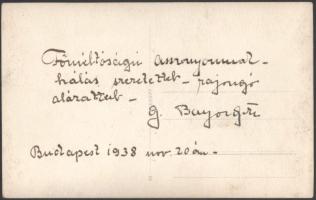 Főméltóságú asszonyomnak -
hálás szeretettel - rajongó
alázattal -
G. Bayor Gizi
Budapest 1938 nov. 20án -